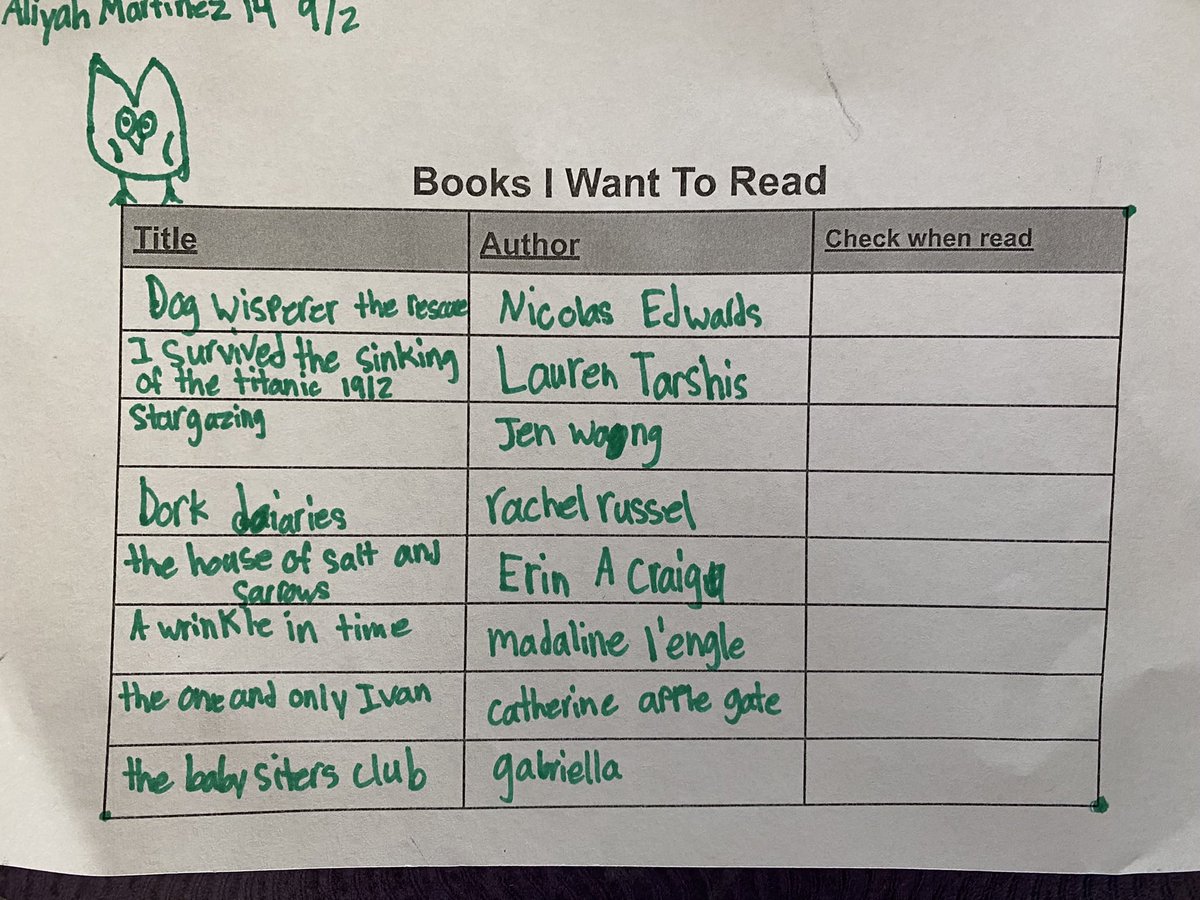 Aliyah Martinez 14 9/2
Books I Want To Read
Title Author Check when read
Dog wisperer the rescue Nicolas Edwards
I survived the sinking
of the titanic 1912 Lauren Tarshis
Stargazing Jen wang
Dork diaries rachel russel
the house of salt and
sarrows Erin A Craig
A wrinkle in time madaline l'engle
the one and only Ivan catherine apple gate
the baby siters club gabriella